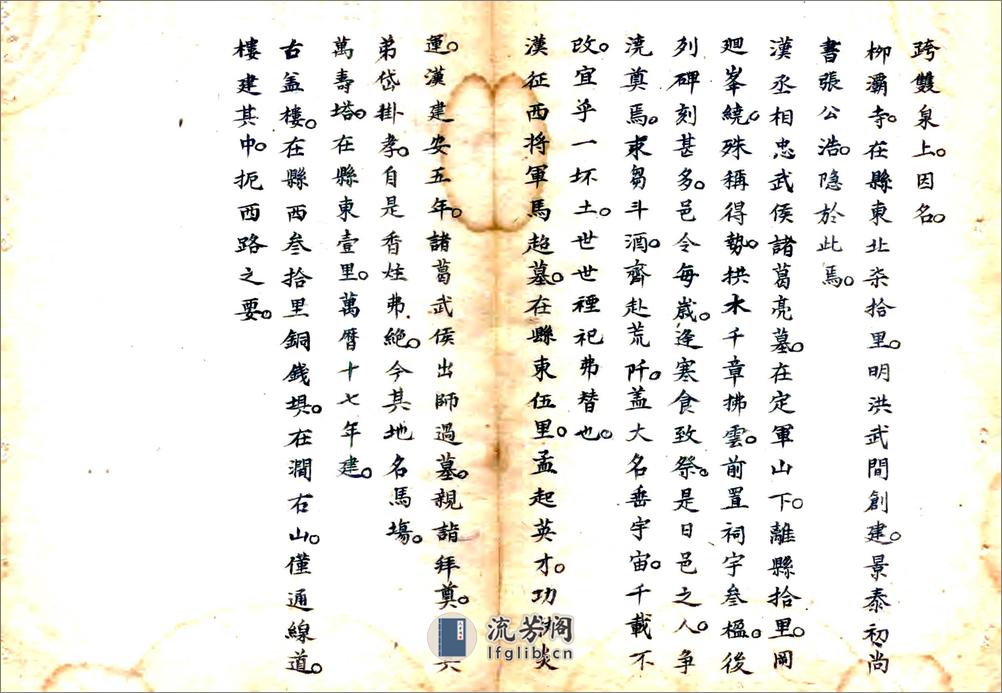 跨雙泉上。因名。
柳灞寺。在縣東北柒拾里。明洪武間創建。景泰初尚
書張公浩。隐於此焉。
漢丞相忠武侯諸葛亮墓。在定軍山下。離縣拾里。岡
廻峯繞。殊稱得勢。拱木千章拂雲。前置祠宇叁楹。後
列碑刻甚多。邑令每歲。逢寒食致祭。是日邑之人。争
澆奠焉。束芻斗酒。齊赴荒阡。盖大名垂宇宙。千載不
改。宜乎一坏土。世世禋祀弗替也。
漢征西将軍馬超墓。在縣東伍里。孟起英才。功
運。漢建安五年。諸葛武侯出師過墓。親詣拜奠。
弟岱掛孝。自是香炷弗絶。今其地名馬塲。
萬壽塔。在縣東壹里。萬曆十七年建。
古盖樓。在縣西叁拾里銅錢垻。在澗右山。僅通線道。
樓建其中。扼西路之要。
流芳阁
lfglib.cn